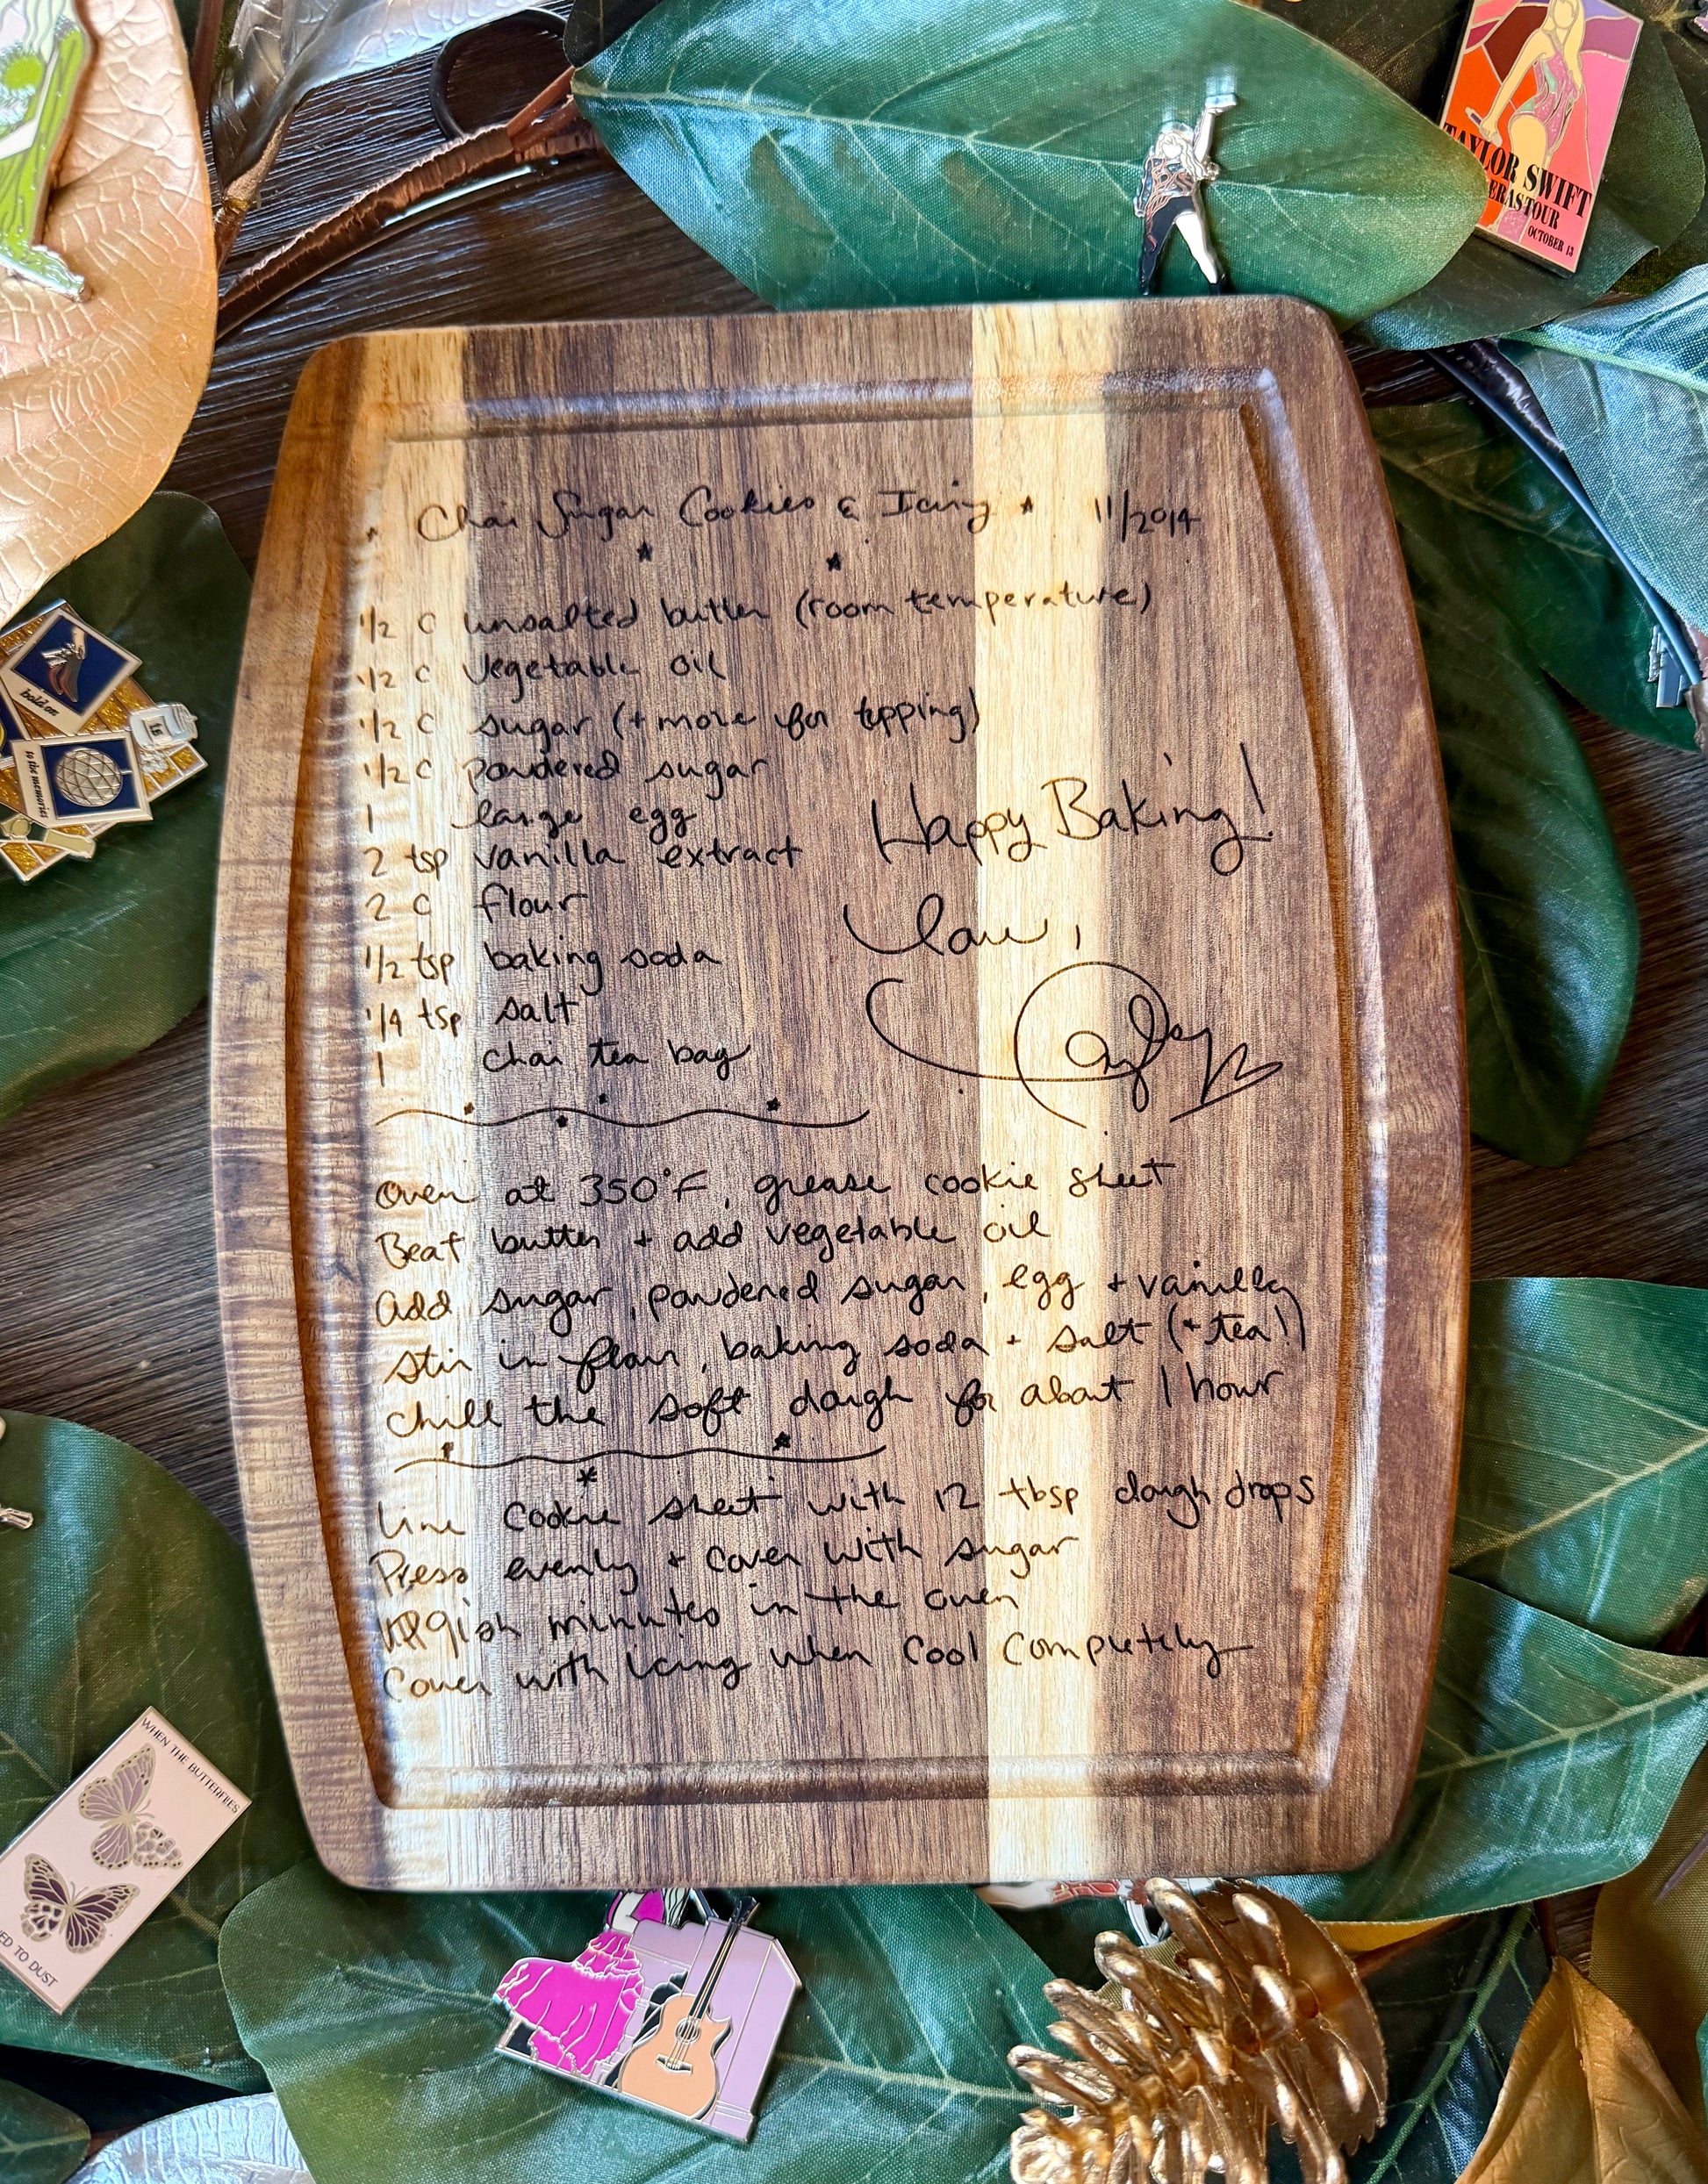 TAYLOR SWIFT
ERAS TOUR
OCTOBER 13
Chai Sugar Cookies & Icing 11/2014
1/2 C unsalted butter (room temperature)
1/2 C vegetable oil
1/2 C sugar (+ more for topping)
1/2 C powdered sugar
1 large egg
2 tsp vanilla extract
2 C flour
1/2 tsp baking soda
1/4 tsp salt
1 chai tea bag
Happy Baking!
Love,
Oven at 350°F, grease cookie sheet
Beat butter + add vegetable oil
Add sugar, powdered sugar, egg + vanilla
stir in flour, baking soda + salt (+ tea!)
chill the soft dough for about 1 hour
Line cookie sheet with 12 tbsp dough drops
Press evenly + cover with sugar
9ish minutes in the oven
Cover with icing when cool completely
hold on
to the memories
WHEN THE BUTTERFLIES
ED TO DUST